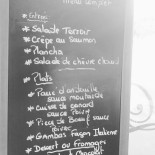 menu
Entrée
* Salade Terroir
* Crêpe au Saumon
* Plancha
* Salade de chèvre chaud
Plats
* Pavé d'
sauce moutarde
* Cuisse de canard
sauce Poivre
* Pièce de Boeuf sauce
poivre
* Gambas façon Italienne
Dessert ou Fromages